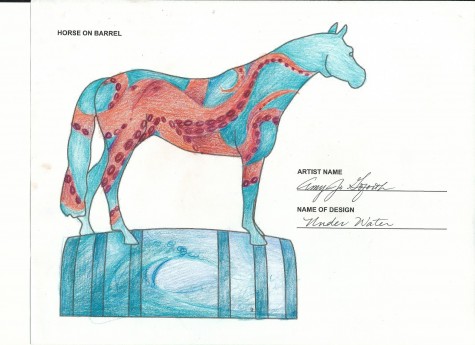 HORSE ON BARREL
ARTIST NAME
Amy Jo
NAME OF DESIGN
Under Water